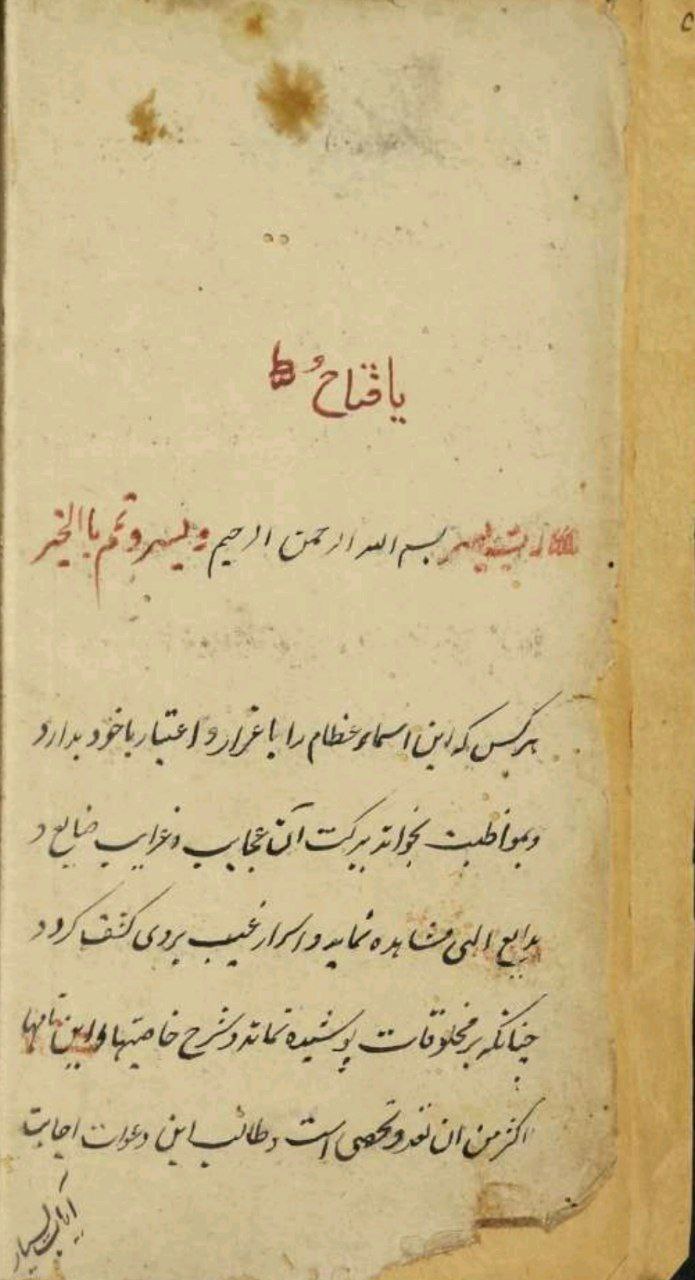 یا فتاح
بسم الله الرحمن الرحیم و یسر و تمم باالخیر
هر کس که این اسماء عظام را باعزاز و اعتبار با خود بدارد
و بمواظبت بخواند ببرکت آن عجایب و غرایب صنایع و
بدایع الهی مشاهده نماید و اسرار غیب بروی کشف کردد
چنانکه بر مخلوقات پوشیده نماند و شرح خاصیتهاء این نامها
اکثر من ان تعد و تحصی است و طالب این دعوات اجابت